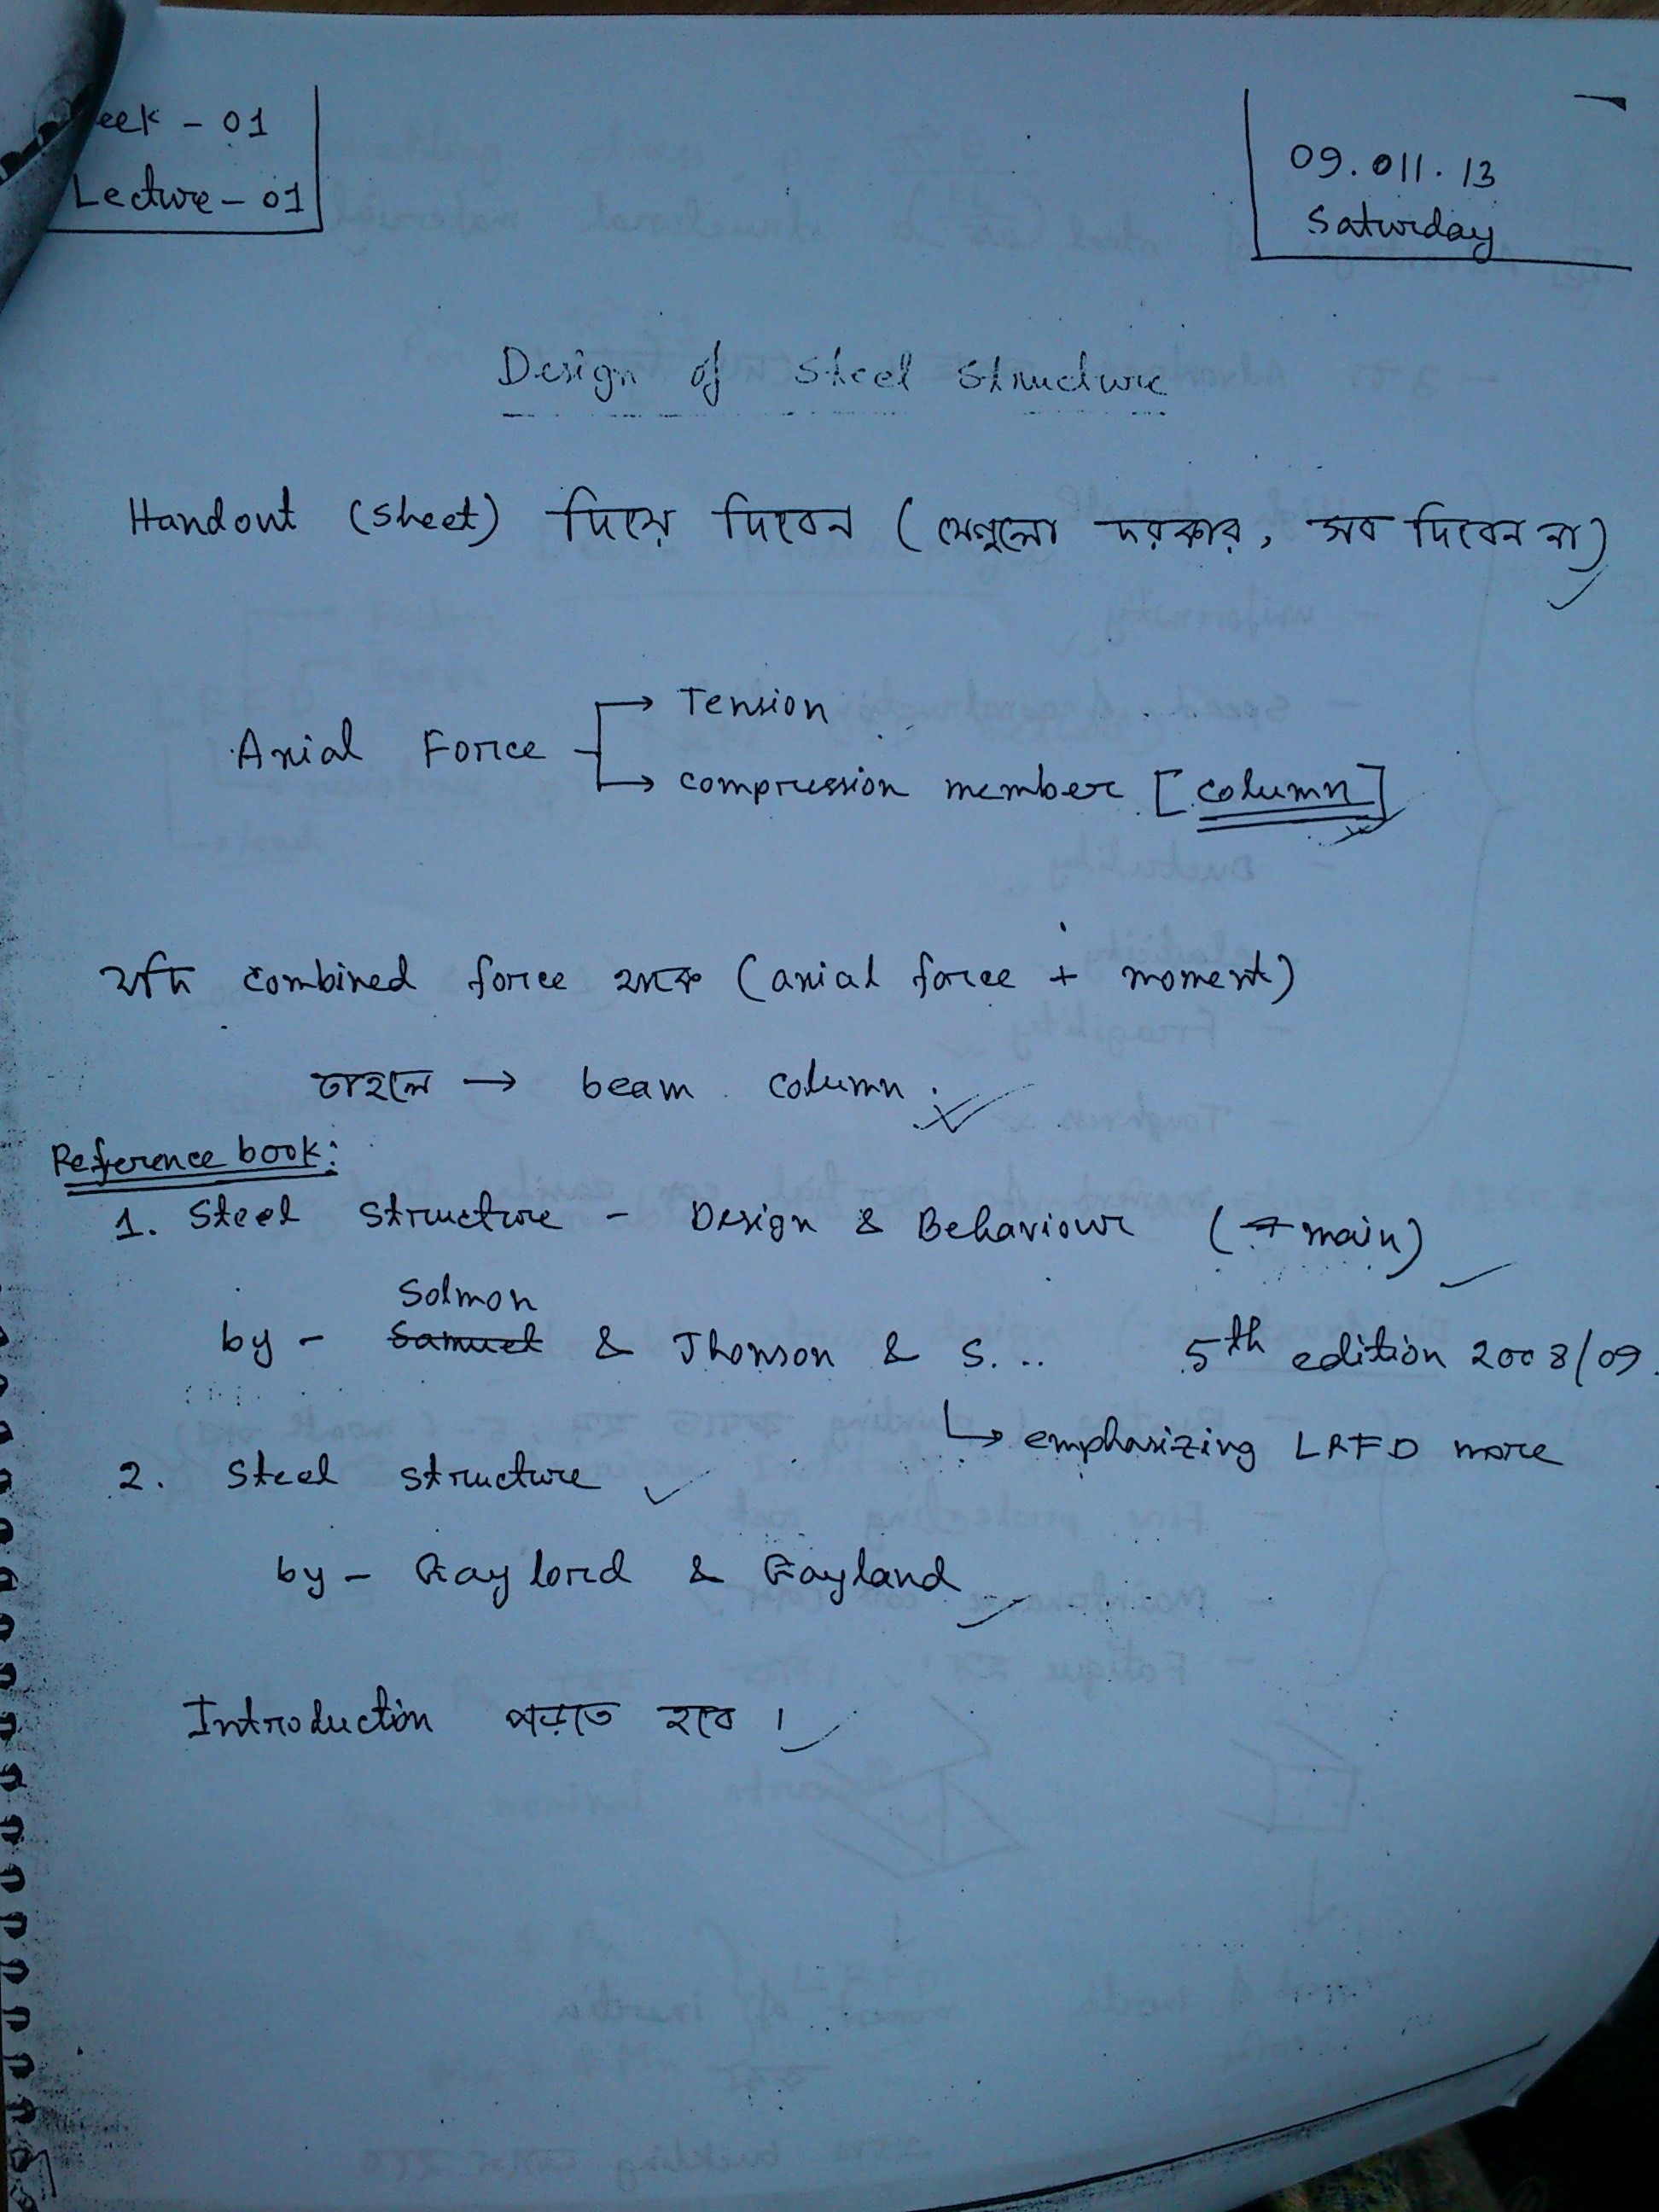 eek - 01
Lecture - 01
09.011.13
Saturday
Design of Steel Structure
Handout (sheet) দিয়ে দিবেন (যেগুলো দরকার, সব দিবেন না)
Axial Force
Tension
compression member [column]
যদি combined force থাকে (axial force + moment)
তাহলে → beam column.
Reference book:
1. Steel Structure - Design & Behaviour (main)
Solmon
by - Samuel & Jhonson & S... 5th edition 2008/09
↳ emphasizing LRFD more
2. Steel structure
by - Gaylord & Gayland
Introduction পড়তে হবে।